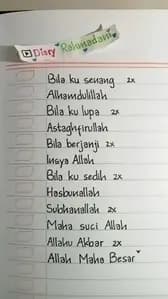 Diary Ramadani
Bila ku senang 2x
Alhamdulillah
Bila ku lupa 2x
Astaghfirullah
Bila berjanji 2x
Insya Allah
Bila ku sedih 2x
Hasbunallah
Subhanallah 2x
Maha suci Allah
Allahu Akbar 2x
Allah Maha Besar